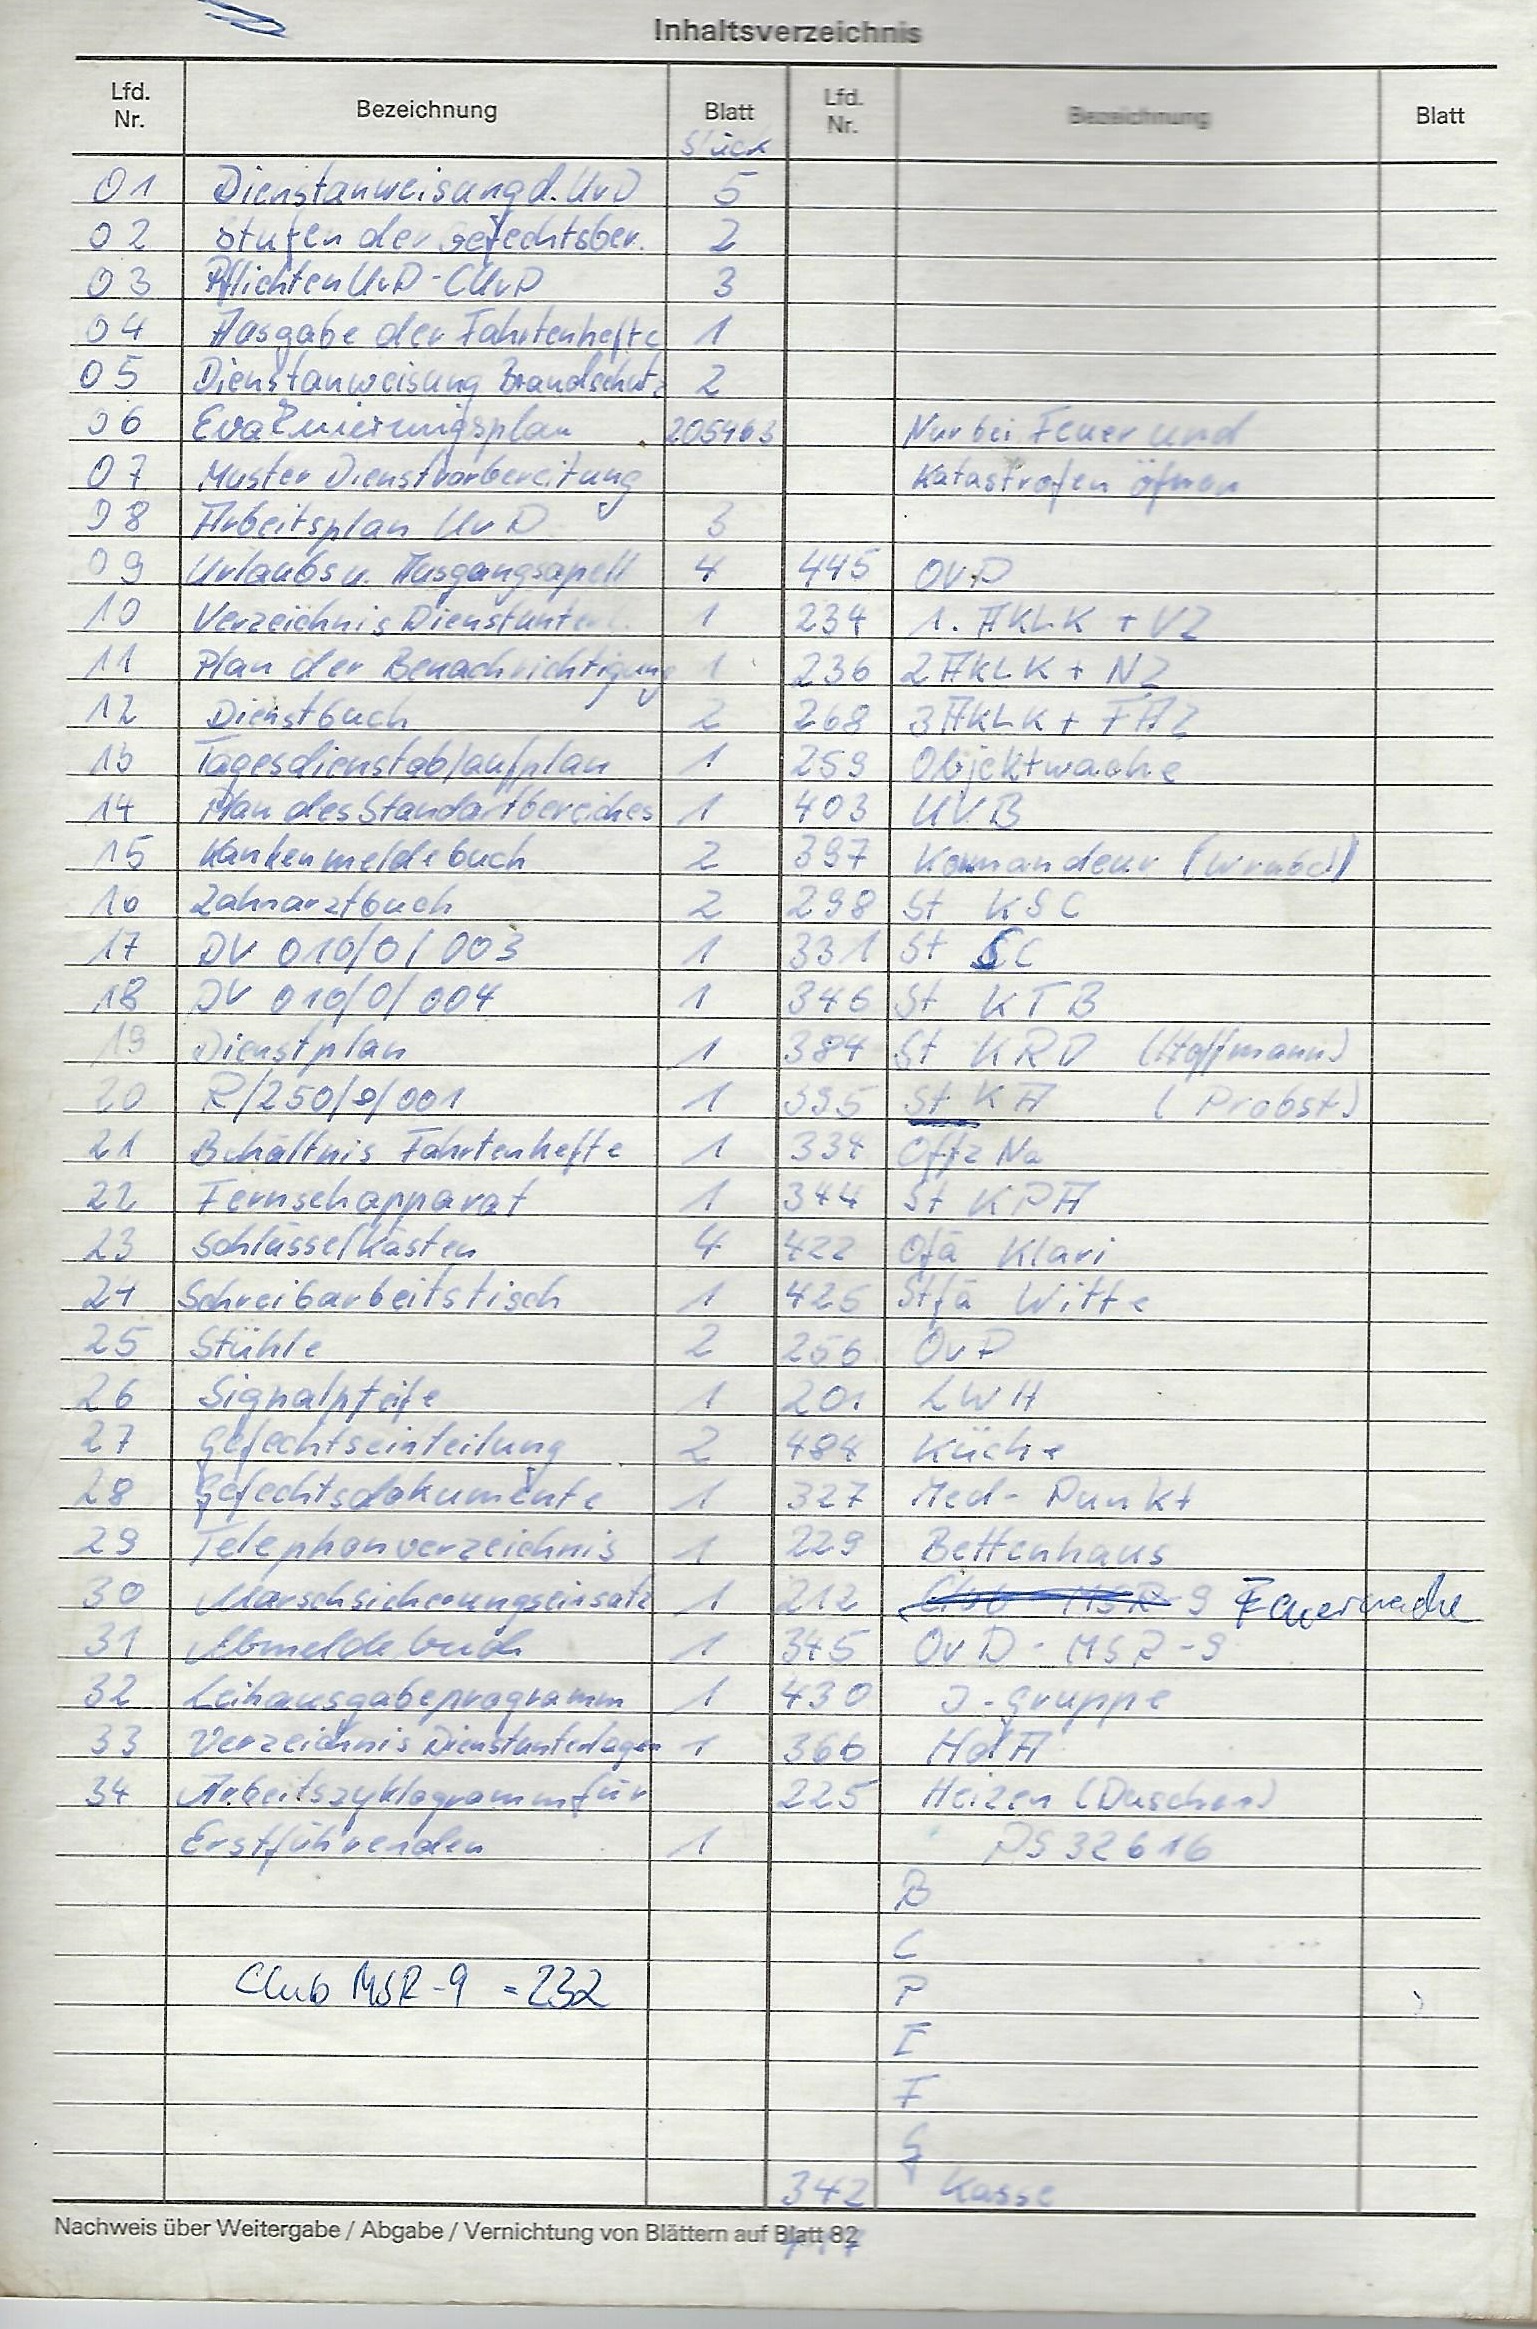 Inhaltsverzeichnis
Lfd. Nr. Bezeichnung Blatt Lfd. Nr. Bezeichnung Blatt
Stück
01 Dienstanweisung d. UvD 5
02 Stufen der Gefechtsber. 2
03 Pflichten UvD-GUvD 3
04 Ausgabe der Fahrtenhefte 1
05 Dienstanweisung Brandschutz 2
06 Evakuierungsplan 205463 Nur bei Feuer und
07 Muster Dienstvorbereitung Katastrofen öfnen
08 Arbeitsplan UvD 3
09 Urlaubs u. Ausgangsapell 4 445 OvP
10 Verzeichnis Dienstunterl. 1 234 1. AKLK + VZ
11 Plan der Benachrichtigung 1 236 2 AKLK + NZ
12 Dienstbuch 2 268 3 AKLK + FAZ
13 Tagesdienstablaufplan 1 259 Objektwache
14 Plan des Standartbereiches 1 403 UVB
15 Krankenmeldebuch 2 397 Kommandeur
16 Zahnarztbuch 2 298 St KSC
17 DV 010/0/003 1 331 St SC
18 DV 010/0/004 1 346 St KTB
19 Dienstplan 1 384 St KRD (Hoffmann)
20 R/250/0/001 1 395 St KA (Probst)
21 Behältnis Fahrtenhefte 1 334 Offz Na
22 Fernsehapparat 1 344 St KPA
23 Schlüsselkästen 4 422 Ofä Klari
24 Schreibarbeitstisch 1 425 Stfä Witte
25 Stühle 2 256 OvP
26 Signalpfeife 1 201 LWH
27 Gefechtseinteilung 2 484 Küche
28 Gefechtsdokumente 1 327 Med-Punkt
29 Telephonverzeichnis 1 229 Bettenhaus
30 Marschsicherungseinsatz 1 212 Club MSR-9 Feuerwache
31 Abmeldebuch 1 345 OvD-MSR-9
32 Leihausgabeprogramm 1 430 J-Gruppe
33 Verzeichnis Dienstunterlagen 1 366 MdA
34 Arbeitszyklogramm für 225 Heizer (Duschen)
Erstführenden 1 PS 32616
B
C
Club MSR-9 = 232 P
E
F
G
342 Kasse
Nachweis über Weitergabe / Abgabe / Vernichtung von Blättern auf Blatt 82